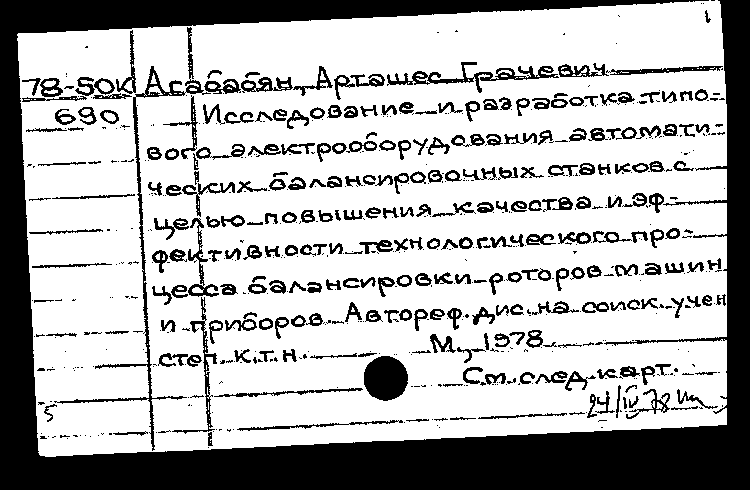 1
78-50К Агабабян, Арташес Грачевич
690 Исследование и разработка типо-
вого электрооборудования автомати-
ческих балансировочных станков с
целью повышения качества и эф-
фективности технологического про-
цесса балансировки роторов машин
и приборов. Автореф. дис. на соиск. учен
степ. к.т.н. М., 1978.
См. след. карт.
5
24/IV 78